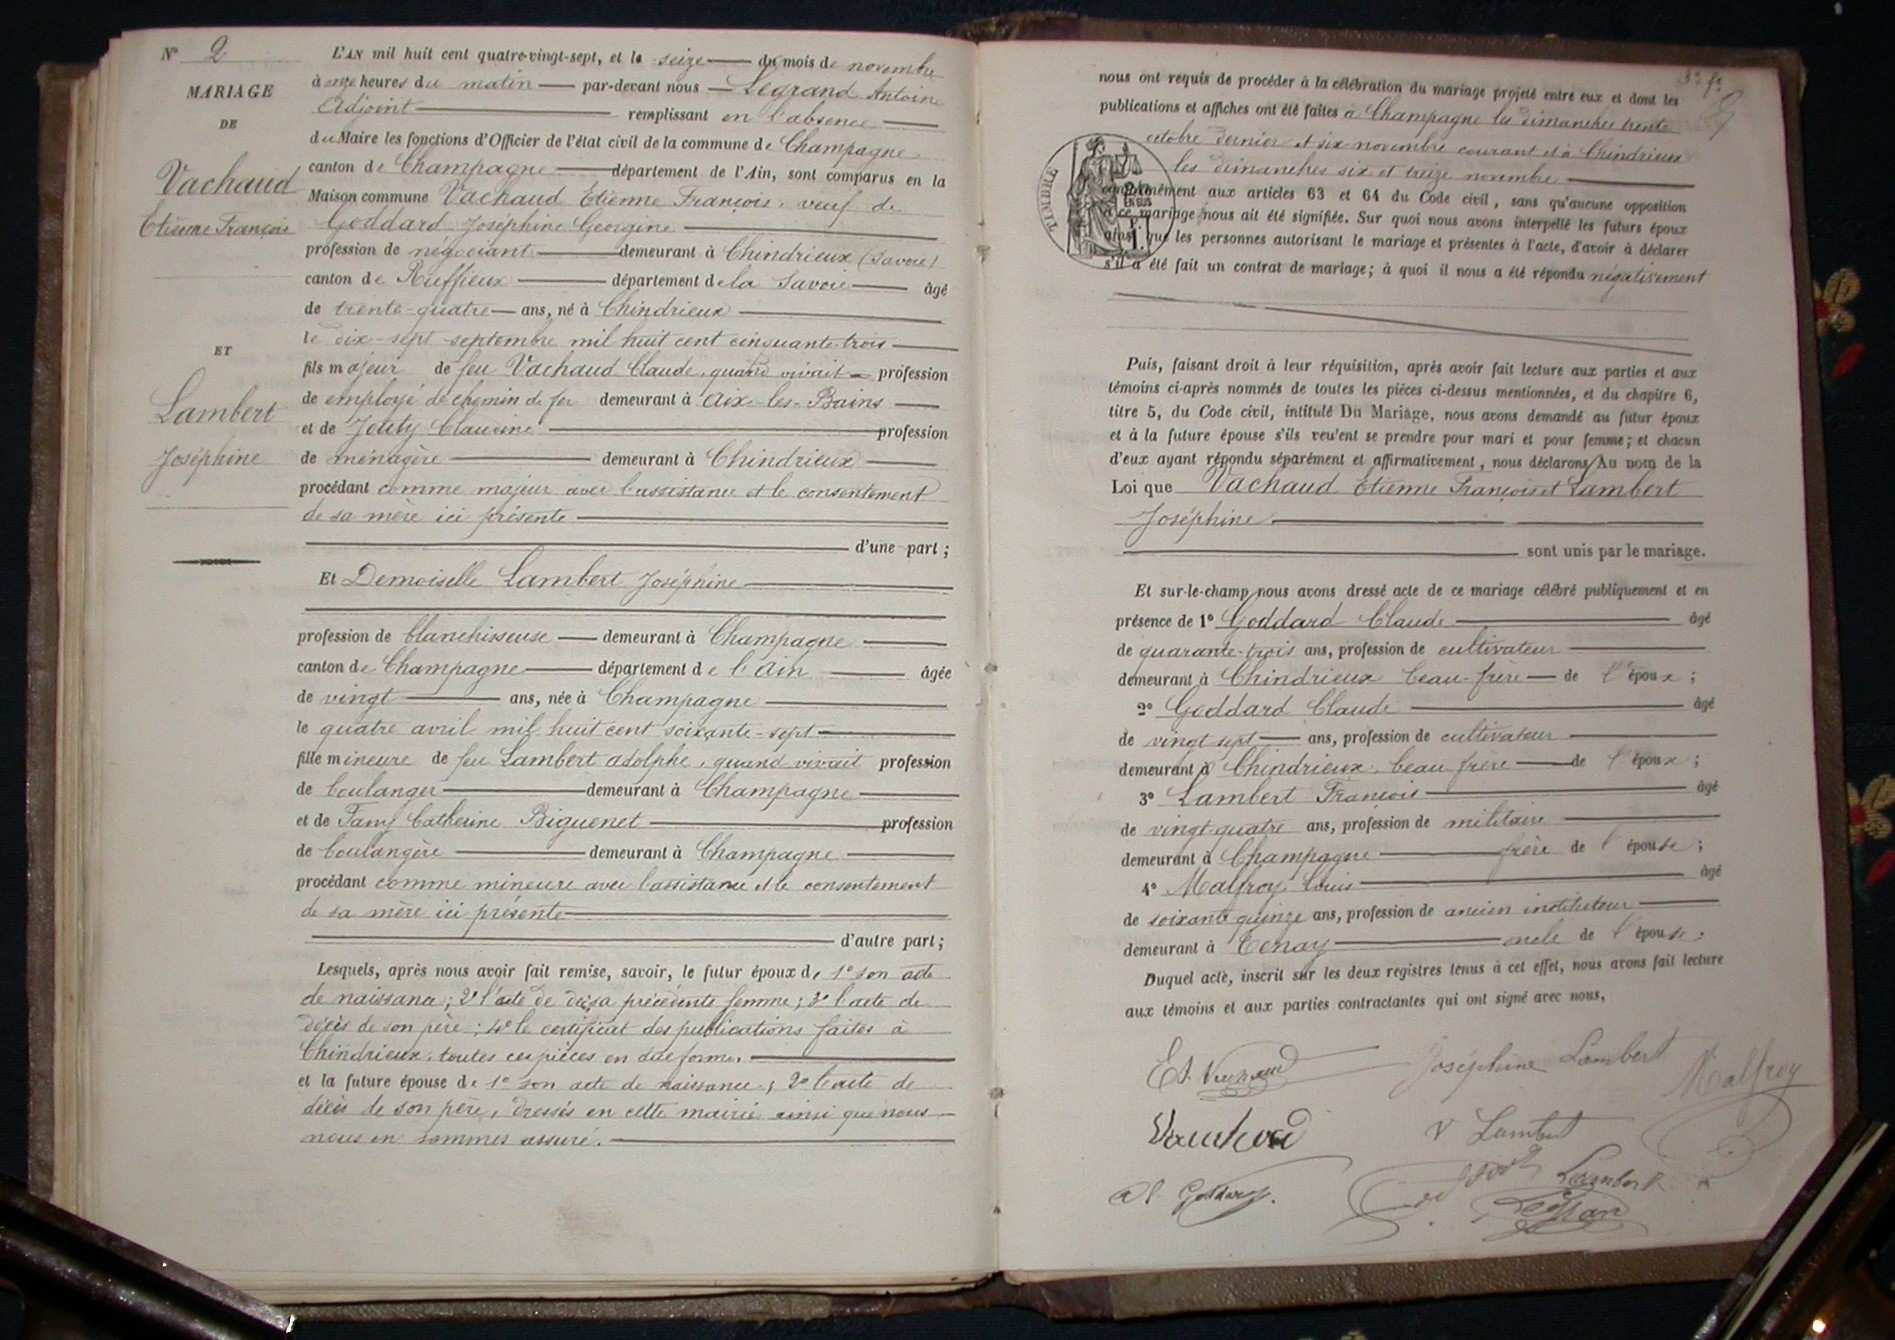 N° 2
MARIAGE
DE
Vachaud
Etienne François
ET
Lambert
Joséphine
L'AN mil huit cent quatre-vingt-sept, et le seize du mois de novembre
à onze heures du matin par-devant nous Legrand Antoine
Adjoint remplissant en l'absence
du Maire les fonctions d'Officier de l'état civil de la commune de Champagne
canton de Champagne département de l'Ain, sont comparus en la
Maison commune Vachaud Etienne François, veuf de
Goddard Joséphine Georgine
profession de négociant demeurant à Chindrieux (Savoie)
canton de Ruffieux département de la Savoie âgé
de trente-quatre ans, né à Chindrieux
le dix-sept septembre mil huit cent cinquante-trois
fils majeur de feu Vachaud Claude, quand vivait profession
de employé de chemin de fer demeurant à Aix-les-Bains
et de Jouty Claudine profession
de ménagère demeurant à Chindrieux
procédant comme majeur avec l'assistance et le consentement
de sa mère ici présente
d'une part;
Et Demoiselle Lambert Joséphine
profession de blanchisseuse demeurant à Champagne
canton de Champagne département de l'Ain âgée
de vingt ans, née à Champagne
le quatre avril mil huit cent soixante-sept
fille mineure de feu Lambert Adolphe, quand vivait profession
de boulanger demeurant à Champagne
et de Fany Catherine Biguenet profession
de boulangère demeurant à Champagne
procédant comme mineure avec l'assistance et le consentement
de sa mère ici présente
d'autre part;
Lesquels, après nous avoir fait remise, savoir, le futur époux de 1° son acte
de naissance; 2° l'acte de décès de sa précédente femme; 3° l'acte de
décès de son père; 4° le certificat des publications faites à
Chindrieux, toutes ces pièces en due forme.
et la future épouse de 1° son acte de naissance; 2° l'acte de
décès de son père, dressés en cette mairie ainsi que nous
nous en sommes assuré.
3e fe
nous ont requis de procéder à la célébration du mariage projeté entre eux et dont les
publications et affiches ont été faites à Champagne les dimanches trente
octobre dernier et six novembre courant et à Chindrieux
les dimanches six et treize novembre
TIMBRE
conformément aux articles 63 et 64 du Code civil, sans qu'aucune opposition
à ce mariage nous ait été signifiée. Sur quoi nous avons interpellé les futurs époux
ainsi que les personnes autorisant le mariage et présentes à l'acte, d'avoir à déclarer
s'il a été fait un contrat de mariage; à quoi il nous a été répondu négativement
Puis, faisant droit à leur réquisition, après avoir fait lecture aux parties et aux
témoins ci-après nommés de toutes les pièces ci-dessus mentionnées, et du chapitre 6,
titre 5, du Code civil, intitulé Du Mariage, nous avons demandé au futur époux
et à la future épouse s'ils veu'ent se prendre pour mari et pour femme; et chacun
d'eux ayant répondu séparément et affirmativement, nous déclarons Au nom de la
Loi que Vachaud Etienne François et Lambert
Joséphine
sont unis par le mariage.
Et sur-le-champ nous avons dressé acte de ce mariage célébré publiquement et en
présence de 1° Goddard Claude âgé
de quarante-trois ans, profession de cultivateur
demeurant à Chindrieux beau-frère de l'époux;
2° Goddard Claude âgé
de vingt sept ans, profession de cultivateur
demeurant à Chindrieux, beau frère de l'époux;
3° Lambert François âgé
de vingt-quatre ans, profession de militaire
demeurant à Champagne frère de l'épouse;
4° Malfroy Louis âgé
de soixante quinze ans, profession de ancien instituteur
demeurant à Tenay oncle de l'épouse.
Duquel acte, inscrit sur les deux registres tenus à cet effet, nous avons fait lecture
aux témoins et aux parties contractantes qui ont signé avec nous,
Et. Vachaud Joséphine Lambert Malfroy
Vachaud V Lambert
Goddard Lambert